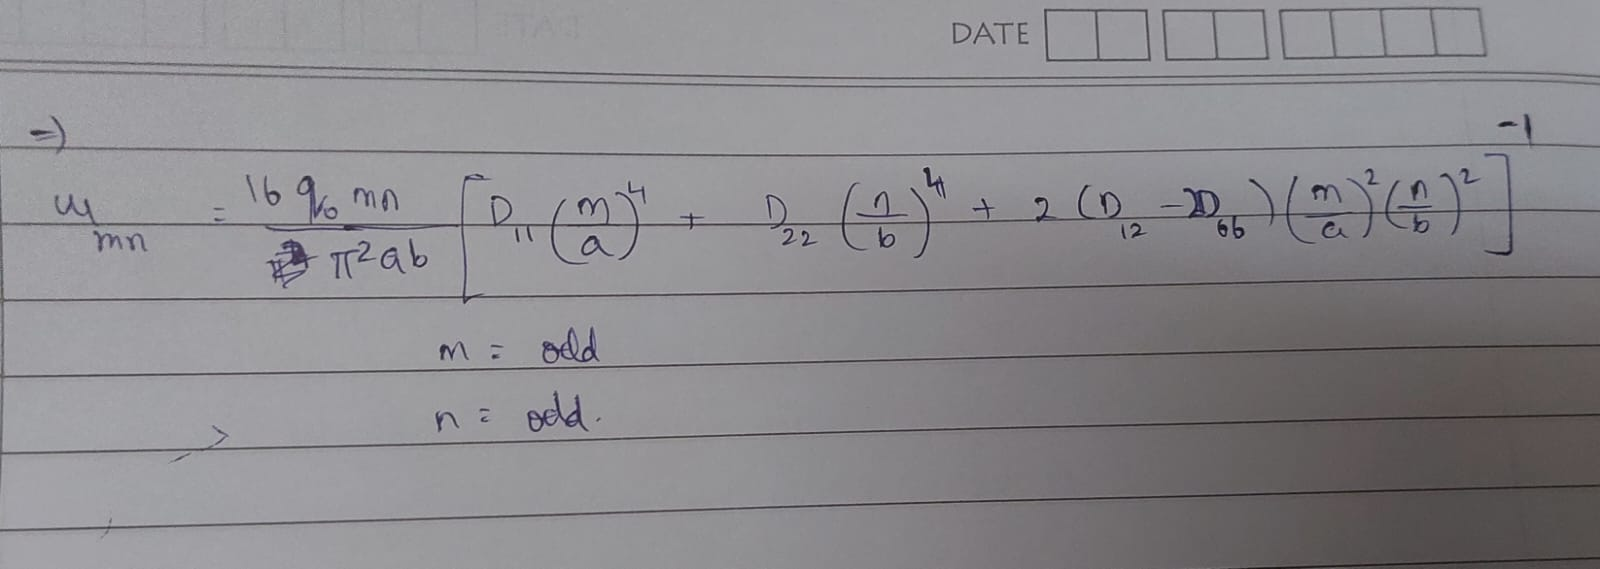 DATE
⇒
w_mn = 16 q₀ mn / π² ab [ D₁₁ (m/a)⁴ + D₂₂ (n/b)⁴ + 2 (D₁₂ - 2D₆₆) (m/a)² (n/b)² ]⁻¹
m = odd
n = odd.